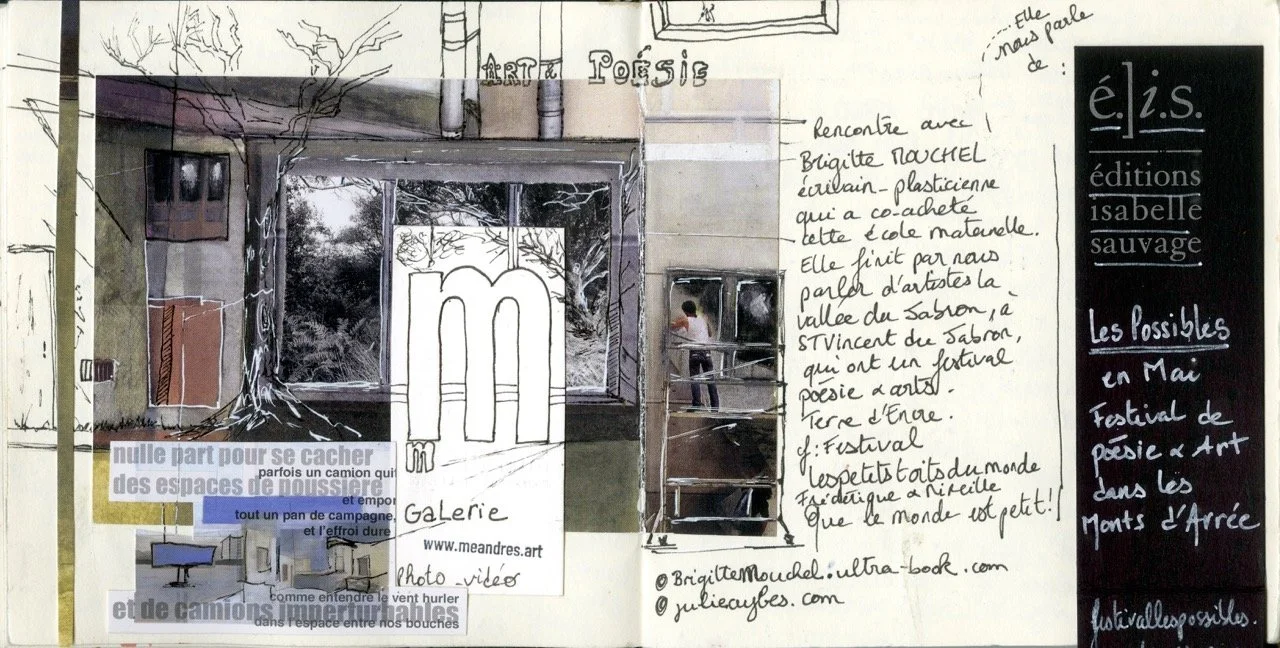 ART & POÉSIE
nulle part pour se cacher
parfois un camion qui
des espaces de poussière
et empor
tout un pan de campagne,
et l'effroi dure
comme entendre le vent hurler
et de camions imperturbables
dans l'espace entre nos bouches
m
m
Galerie
www.meandres.art
Photo-vidéo
Elle
nous parle
de :
Rencontre avec
Brigitte MOUCHEL
écrivain-plasticienne
qui a co-acheté
cette école maternelle.
Elle finit par nous
parler d'artistes la
vallée du Jabron, à
ST Vincent du Jabron,
qui ont un festival
poésie & arts.
Terre d'Encre.
cf: Festival
les petits toits du monde
Frédérique & Mireille
Que le monde est petit!
@ BrigitteMouchel.ultra-book.com
@ juliecaybes.com
é.]i.s.
éditions
isabelle
sauvage
Les Possibles
en Mai
Festival de
poésie & Art
dans les
Monts d'Arrée
festivallespossibles.